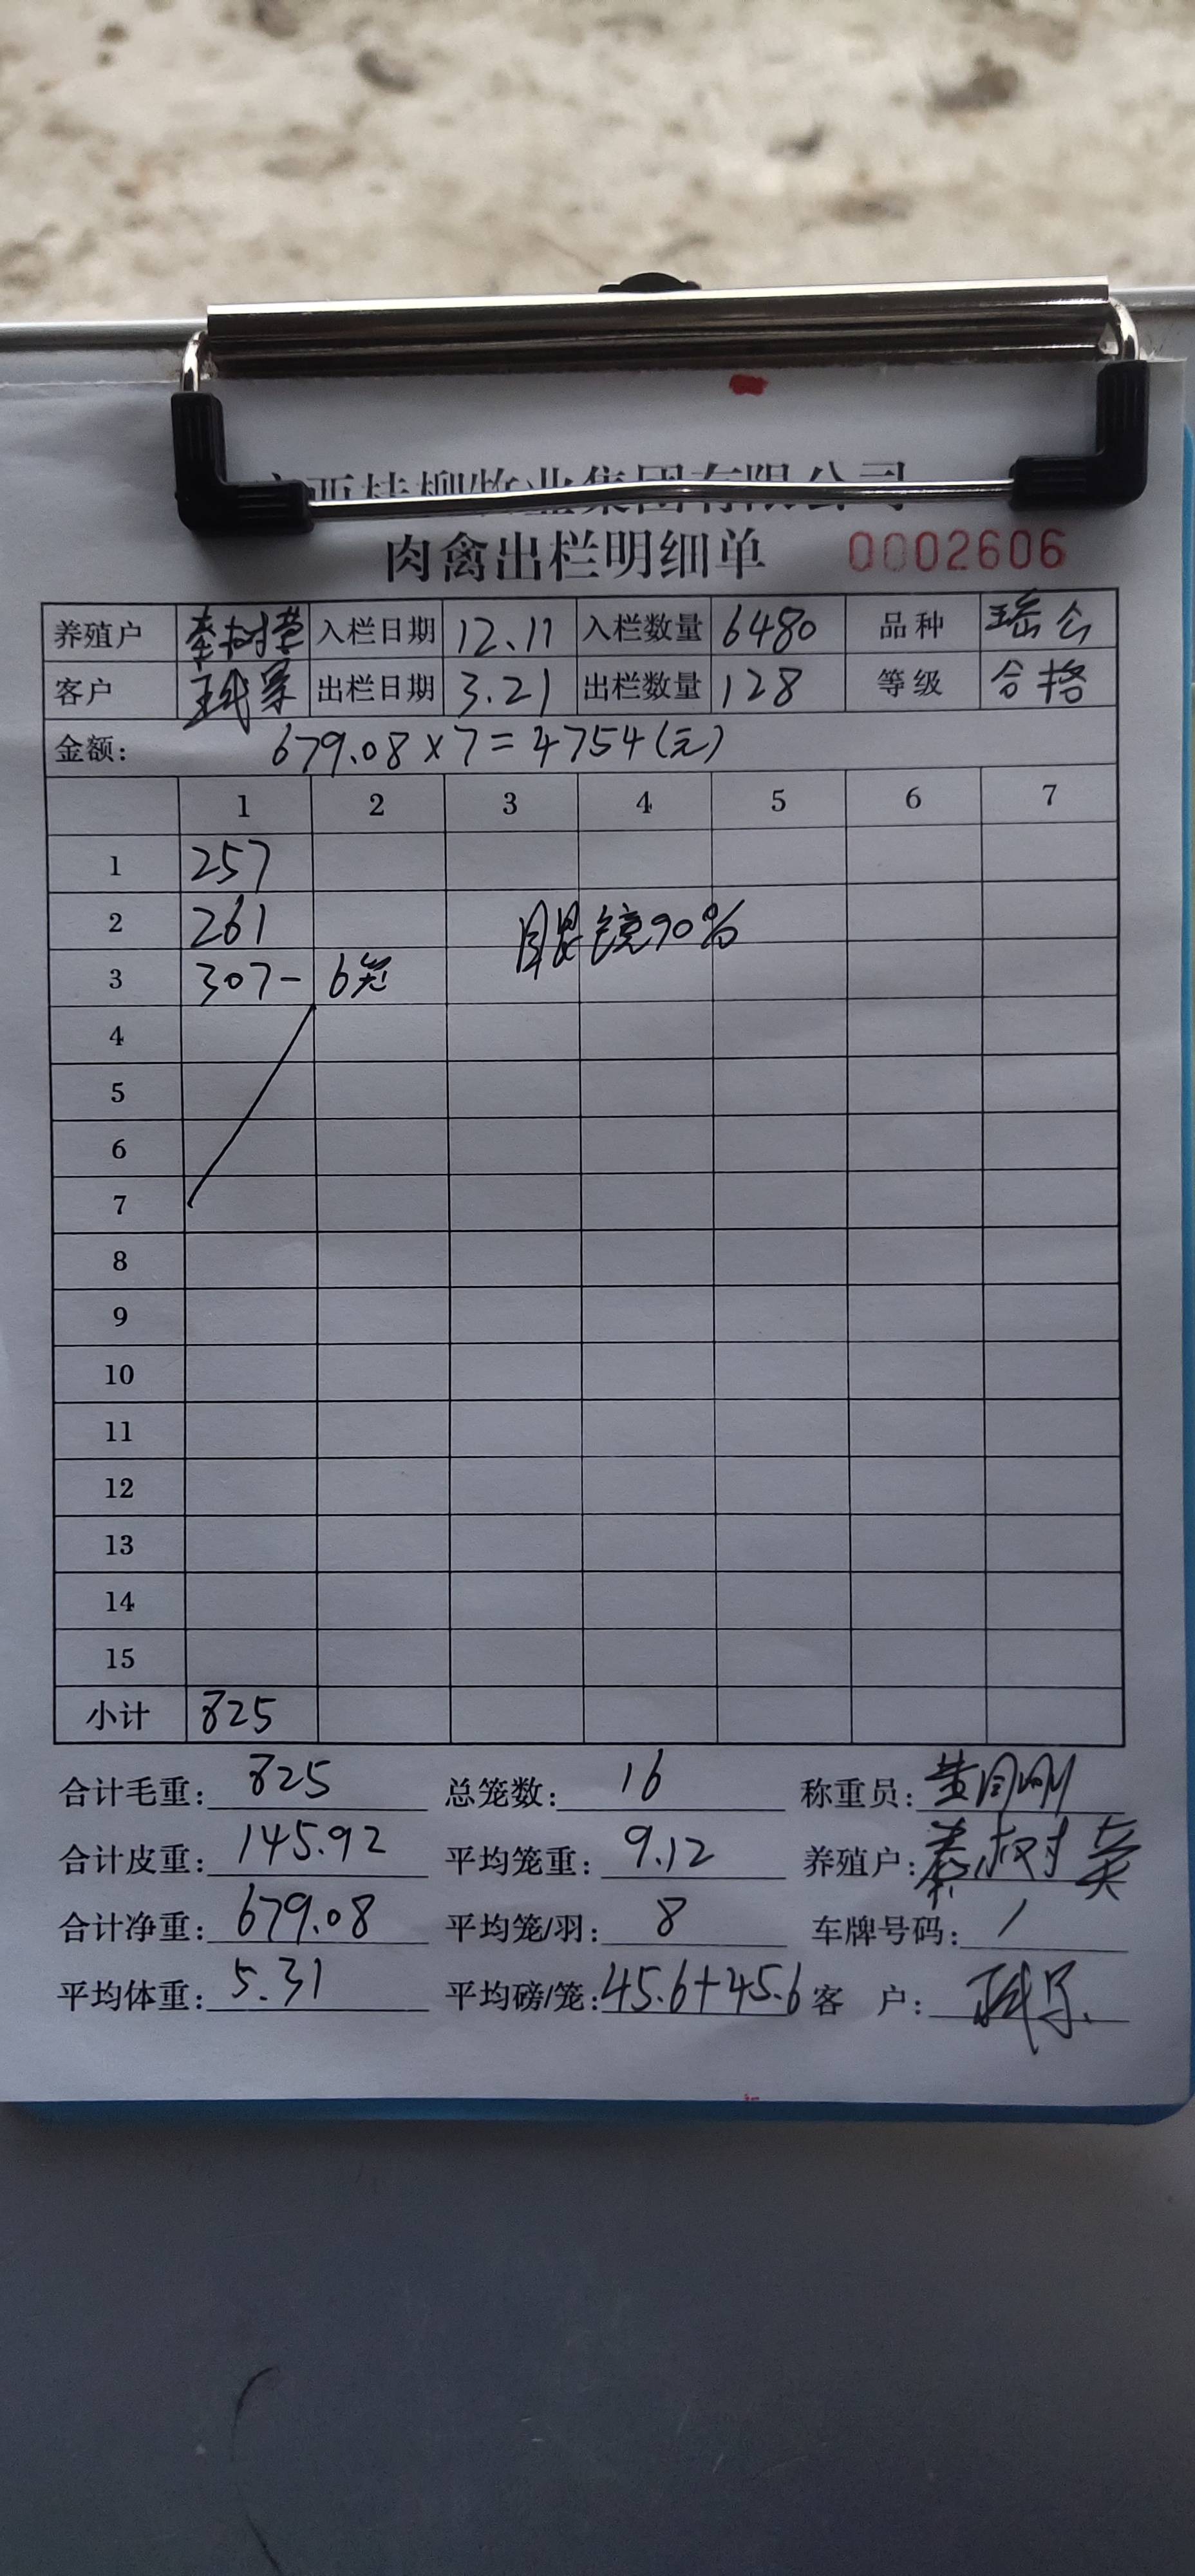 西桂柳牧业集团有限公司
肉禽出栏明细单 0002606
养殖户 秦树 入栏日期 12.11 入栏数量 6480 品种 瑶公
客户 出栏日期 3.21 出栏数量 128 等级 合格
金额: 679.08×7=4754(元)
1 2 3 4 5 6 7
1 257
2 261 眼镜90%
3 307-6笼
4
5
6
7
8
9
10
11
12
13
14
15
小计 825
合计毛重: 825 总笼数: 16 称重员: 黄刚刚
合计皮重: 145.92 平均笼重: 9.12 养殖户: 秦树
合计净重: 679.08 平均笼/羽: 8 车牌号码: /
平均体重: 5.31 平均磅/笼: 45.6+45.6 客户: